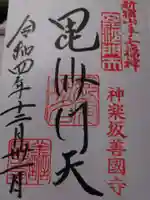 新宿山ノ手七福神
神楽坂善國寺
毘沙門天
令和四年十二月卅一日